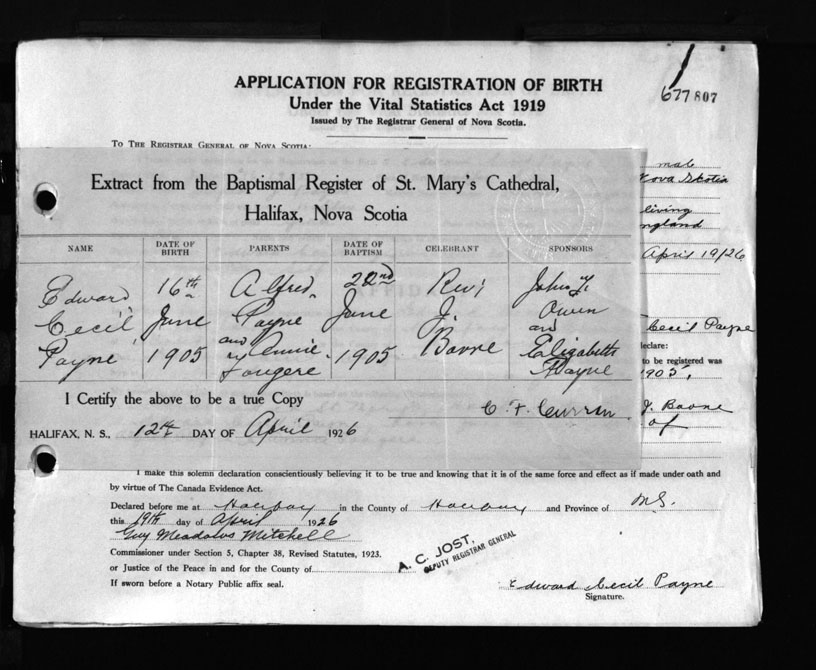 APPLICATION FOR REGISTRATION OF BIRTH
Under the Vital Statistics Act 1919
Issued by The Registrar General of Nova Scotia.
677807
TO THE REGISTRAR GENERAL OF NOVA SCOTIA:
male
Nova Scotia
living
England
April 19/26
Cecil Payne
declare:
to be registered was
1905,
J. Boone
of
Extract from the Baptismal Register of St. Mary's Cathedral,
Halifax, Nova Scotia
NAME DATE OF BIRTH PARENTS DATE OF BAPTISM CELEBRANT SPONSORS
Edward 16th Alfred 22nd Rev. John
Cecil June Payne June J. Owen
and and
Payne 1905 Annie 1905 Elizabeth
Fougere Payne
I Certify the above to be a true Copy
C. F. Curran
HALIFAX, N. S., 12th DAY OF April 1926
I make this solemn declaration conscientiously believing it to be true and knowing that it is of the same force and effect as if made under oath and
by virtue of The Canada Evidence Act.
Declared before me at Halifax in the County of Halifax and Province of N.S.
this 19th day of April 1926
Guy Meadows Mitchell
Commissioner under Section 5, Chapter 38, Revised Statutes, 1923.
or Justice of the Peace in and for the County of
If sworn before a Notary Public affix seal.
A. C. JOST,
DEPUTY REGISTRAR GENERAL
Edward Cecil Payne
Signature.